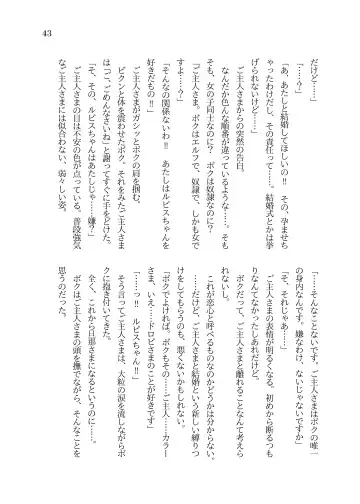 43
だけど……」
「……？」
「あ、あたしと結婚してほしいの‼　その、孕ませち
ゃったわけだし、その責任って……。結婚式とかは挙
げられないけど……」
ご主人さまからの突然の告白。
なんだか色んな順番が違っているような……。そも
そも、女の子同士なのに？　ボクは奴隷なのに？
「ご主人さま。ボクはエルフで、奴隷で、しかも女で
すよ……？」
「そんなの関係ないわ‼　あたしはルビスちゃんを
好きだもの‼」
ご主人さまがガシッとボクの肩を掴む。
ビクンと体を震わせたボク。それをみたご主人さま
は「ご、ごめんなさいね」と謝ってすぐに手をどけた。
「そ、その、ルビスちゃんはあたしじゃ…嫌？」
ご主人さまの目は不安の色が点っている。普段強気
なご主人さまには似合わない、弱々しい姿。
「……そんなことないです。ご主人さまはボクの唯一
の身内なんです。嫌なわけ、ないじゃないですか」
「そ、それじゃあ……」
ご主人さまの表情が明るくなる。初めから断るつも
りなんてなかったしあれだけど。
ボクだって、ご主人さまと離れることなんて考えら
れないし。
これが恋心と呼べるものなのかどうかは分からない。
……だけど、ご主人さまと結婚という新しい縛りつ
けをしてもらうのも、悪くないかもしれない。
「ボクでよければ。ボクもその……ご主人……カラー
さま、いえ……ドロビさまのことが好きです」
「……っ‼　ルビスちゃん‼」
そう言ってご主人さまは、大粒の涙を流しながらボ
クに抱き付いてきた。
全く、これから旦那さまになるというのに……。
ボクはご主人さまの頭を撫でながら、そんなことを
思うのだった。